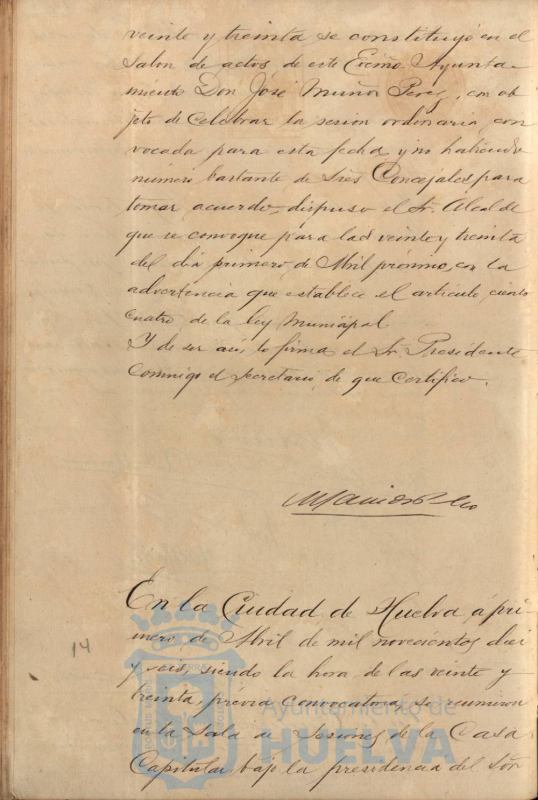 veinte y treinta se constituyó en el
Salon de actos de este Excmo. Ayunta-
miento Don José Muñoz Perez, con ob
jeto de celebrar la sesion ordinaria con
vocada para esta fecha y no habiendo
número bastante de Sres Concejales para
tomar acuerdo, dispuso el Sr. Alcalde
que se convoque para las veinte y treinta
del dia primero de Abril próximo, con la
advertencia que establece el artículo ciento
cuatro de la Ley Municipal.
Y de ser así, lo firma el Sr. Presidente
conmigo el Secretario, de que certifico.
En la Ciudad de Huelva, á pri
mero de Abril de mil novecientos diez
14
y seis, siendo la hora de las veinte y
treinta, prévia convocatoria, se reunieron
en la Sala de Sesiones de la Casa
Capitular, bajo la presidencia del Sor
Ayuntamiento de
HUELVA